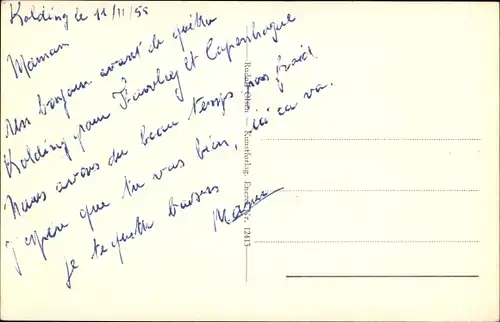 Kolding le 11/11/55
Maman
Un bonjour avant de quitter
Kolding pour et Copenhague
Nous avons du beau temps pas froid
j'espère que tu vas bien, ici ça va.
je te quitte baisers
Rudolf Olsen — Kunstforlag, Eneret Nr. 12413